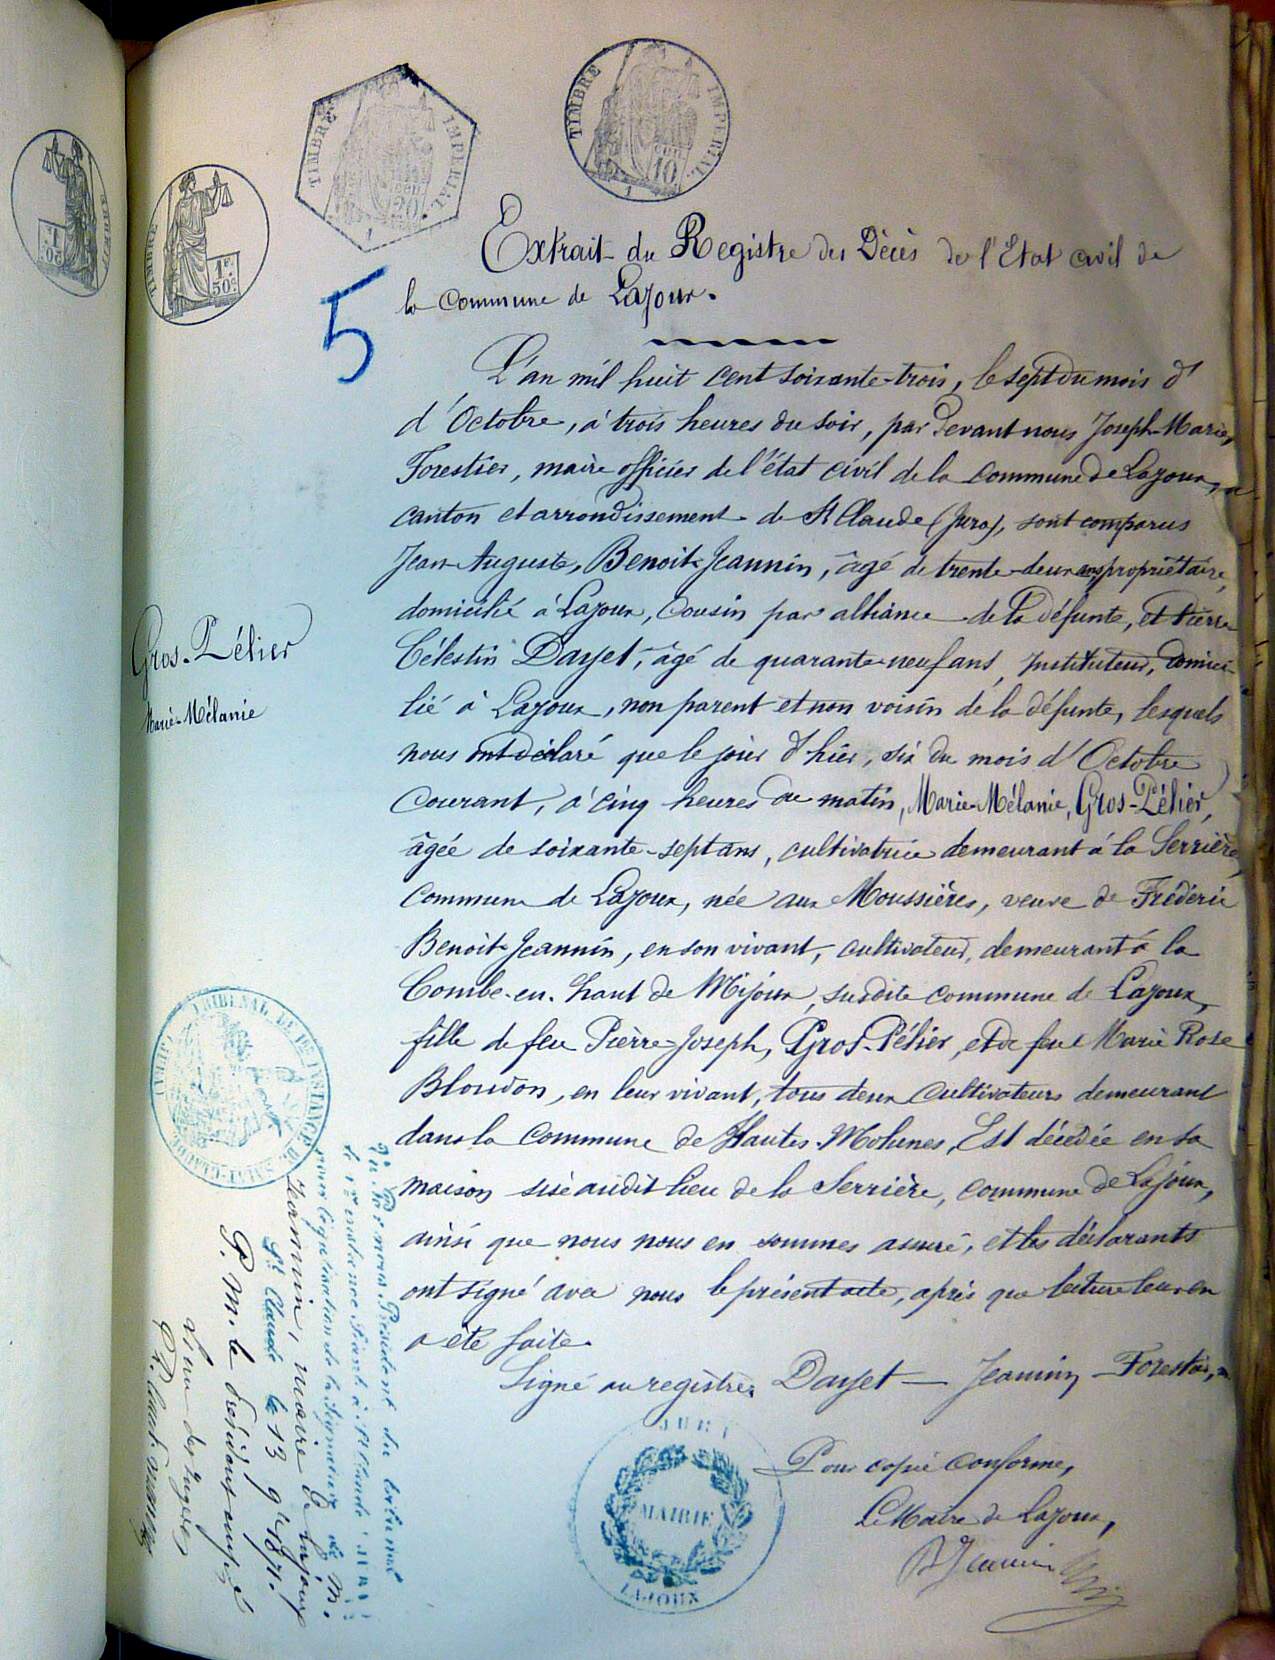 TIMBRE IMPERIAL
20
TIMBRE IMPERIAL
10
TIMBRE
1F
50c
5
Extrait du Registre des Décès de l'Etat civil de
la Commune de Lajoux.
L'an mil huit cent soixante-trois, le sept du mois d'
d'Octobre, à trois heures du soir, par devant nous Joseph-Marie,
Forestier, maire officier de l'état civil de la commune de Lajoux,
canton et arrondissement de St Claude (Jura), sont comparus
Jean-Auguste, Benoit-Jeannin, âgé de trente-deux ans propriétaire,
domicilié à Lajoux, Cousin par alliance de la défunte, et Pierre
Célestin Dayet, âgé de quarante-neuf ans, Instituteur, domici-
lié à Lajoux, non parent et non voisin de la défunte, lesquels
nous ont déclaré que le jour d'hier, six du mois d'Octobre
Courant, à cinq heures du matin, Marie-Mélanie, Gros-Pélier,
âgée de soixante-sept ans, cultivatrice demeurant à la Serrière,
Commune de Lajoux, née aux Moussières, veuve de Fréderic
Benoit-Jeannin, en son vivant, cultivateur, demeurant à la
Combe-en-haut de Mijoux, susdite commune de Lajoux,
fille de feu Pierre-Joseph, Gros-Pélier, et de feue Marie Rose
Blondon, en leur vivant, tous deux Cultivateurs demeurant
dans la Commune de Hautes-Molunes, Est décédée en sa
maison sise audit lieu de la Serrière, commune de Lajoux,
ainsi que nous nous en sommes assuré, et les déclarants
ont signé avec nous le présent acte, après que lecture leur en
a été faite.
Signé au registre, Dayet — Jeannin — Forestier,
Pour copie Conforme,
Le Maire de Lajoux,
Gros-Pélier
Marie-Mélanie
JURA
MAIRIE
LAJOUX
TRIBUNAL DE 1ère INSTANCE DE SAINT-CLAUDE
Vu par nous, Président du tribunal
de 1ère instance séant à St Claude Jura
pour légalisation de la signature de M.
Jeannin, maire de Lajoux
St Claude le 13 9bre 1871.
P. M. le Président empêché